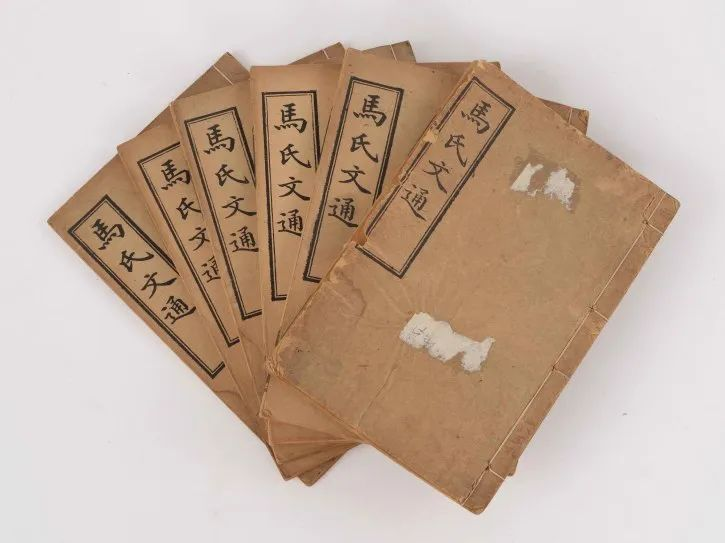 馬氏文通
馬氏文通
馬氏文通
馬氏文通
馬氏文通
馬氏文通